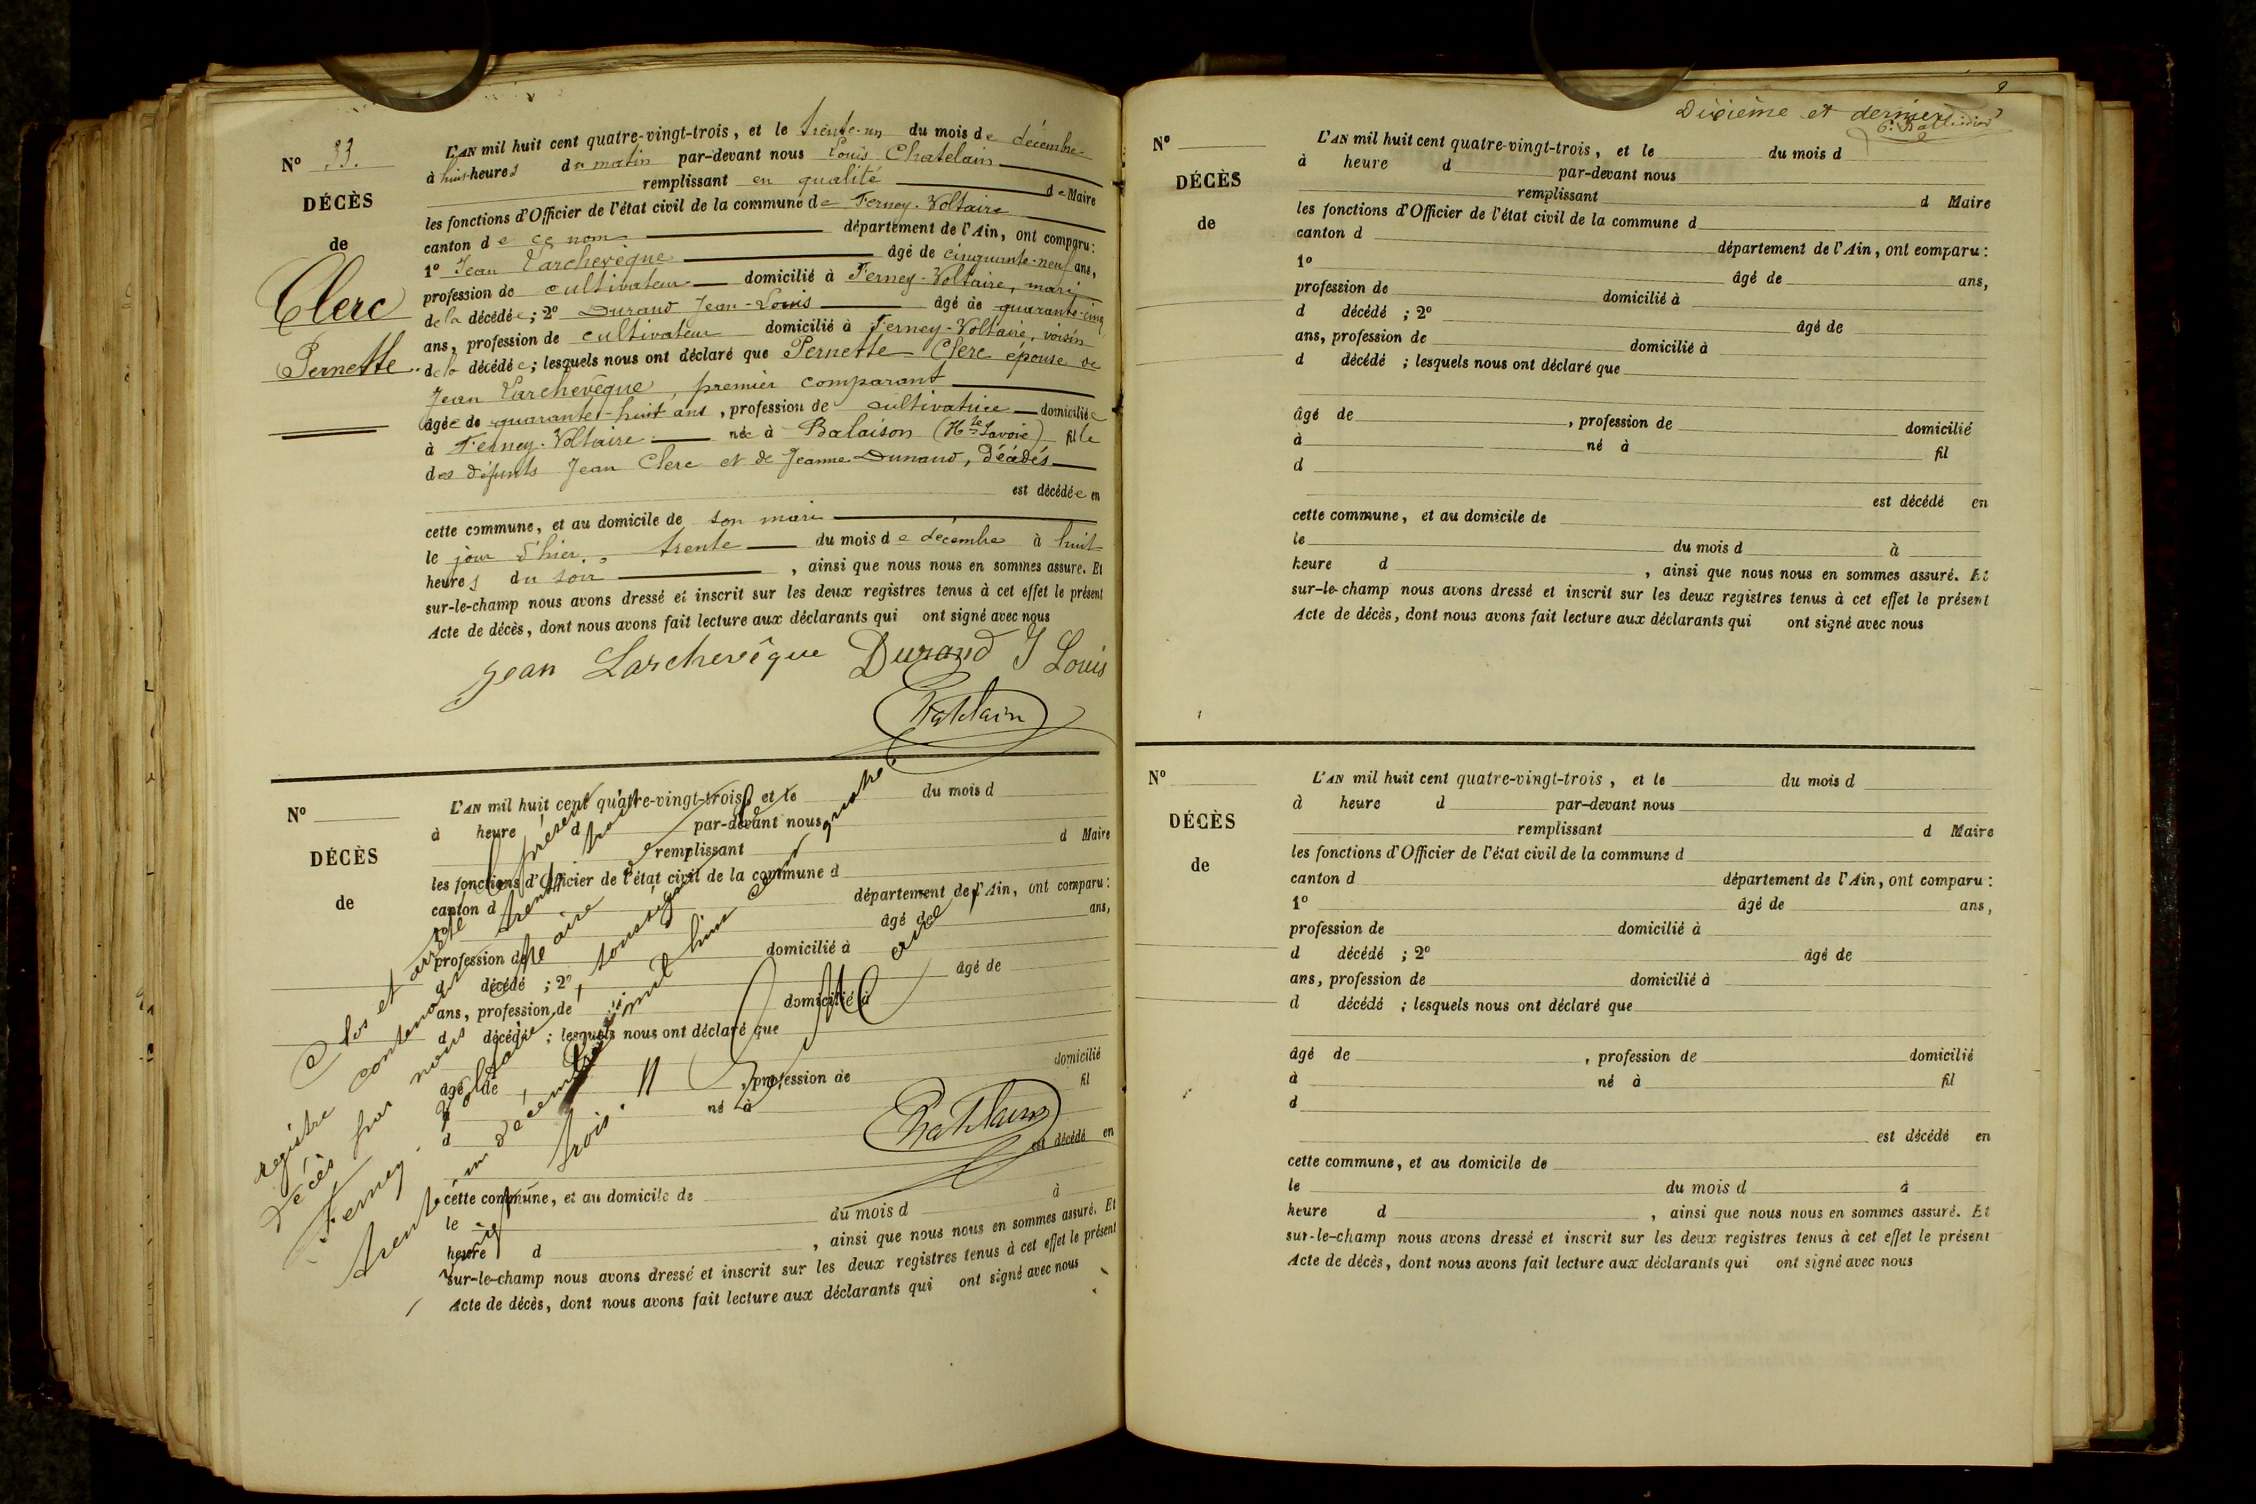 N° 33.
DÉCÈS
de
Clerc
Pernette.
L'AN mil huit cent quatre-vingt-trois, et le trente-un du mois de décembre
à huit heures du matin par-devant nous Louis Chatelain
remplissant en qualité de Maire
les fonctions d'Officier de l'état civil de la commune de Ferney-Voltaire
canton de ce nom département de l'Ain, ont comparu :
1° Jean Larchevêque âgé de cinquante-neuf ans,
profession de cultivateur domicilié à Ferney-Voltaire, mari
de la décédée ; 2° Durand Jean-Louis âgé de quarante-cinq
ans, profession de cultivateur domicilié à Ferney-Voltaire, voisin
de la décédée ; lesquels nous ont déclaré que Pernette Clerc épouse de
Jean Larchevêque, premier comparant
âgée de quarante-huit ans, profession de cultivatrice domiciliée
à Ferney-Voltaire née à Balaison (Hte Savoie) fille
des défunts Jean Clerc et de Jeanne Dunand, décédés
est décédée en
cette commune, et au domicile de son mari
le jour d'hier, trente du mois de décembre à huit
heures du soir , ainsi que nous nous en sommes assuré. Et
sur-le-champ nous avons dressé et inscrit sur les deux registres tenus à cet effet le présent
Acte de décès, dont nous avons fait lecture aux déclarants qui ont signé avec nous
Jean Larchevêque Durand J Louis
Chatelain
N°
DÉCÈS
de
L'AN mil huit cent quatre-vingt-trois, et le du mois d
à heure d par-devant nous
remplissant d Maire
les fonctions d'Officier de l'état civil de la commune d
canton d département de l'Ain, ont comparu :
1° âgé de ans,
profession de domicilié à
d décédé ; 2° âgé de
ans, profession de domicilié à
d décédé ; lesquels nous ont déclaré que
âgé de , profession de domicilié
à né à fil
d
est décédé en
cette commune, et au domicile de
le du mois d à
heure d , ainsi que nous nous en sommes assuré. Et
sur-le-champ nous avons dressé et inscrit sur les deux registres tenus à cet effet le présent
Acte de décès, dont nous avons fait lecture aux déclarants qui ont signé avec nous
Clos et arrêté le présent
registre contenant trente trois
décès par nous
Ferney-Voltaire, soussigné
trente-un décembre mil huit cent quatre
vingt trois.
Chatelain
Dixième et dernier
N°
DÉCÈS
de
L'AN mil huit cent quatre-vingt-trois, et le du mois d
à heure d par-devant nous
remplissant d Maire
les fonctions d'Officier de l'état civil de la commune d
canton d département de l'Ain, ont comparu :
1° âgé de ans,
profession de domicilié à
d décédé ; 2° âgé de
ans, profession de domicilié à
d décédé ; lesquels nous ont déclaré que
âgé de , profession de domicilié
à né à fil
d
est décédé en
cette commune, et au domicile de
le du mois d à
heure d , ainsi que nous nous en sommes assuré. Et
sur-le-champ nous avons dressé et inscrit sur les deux registres tenus à cet effet le présent
Acte de décès, dont nous avons fait lecture aux déclarants qui ont signé avec nous
N°
DÉCÈS
de
L'AN mil huit cent quatre-vingt-trois, et le du mois d
à heure d par-devant nous
remplissant d Maire
les fonctions d'Officier de l'état civil de la commune d
canton d département de l'Ain, ont comparu :
1° âgé de ans,
profession de domicilié à
d décédé ; 2° âgé de
ans, profession de domicilié à
d décédé ; lesquels nous ont déclaré que
âgé de , profession de domicilié
à né à fil
d
est décédé en
cette commune, et au domicile de
le du mois d à
heure d , ainsi que nous nous en sommes assuré. Et
sur-le-champ nous avons dressé et inscrit sur les deux registres tenus à cet effet le présent
Acte de décès, dont nous avons fait lecture aux déclarants qui ont signé avec nous